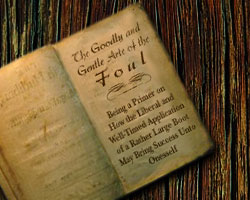 The Goodly and
Gentle Arte of the
Foul
Being a Primer on
How the Liberal and
Well-Timed Application
of a Rather Large Boot
May Bring Success Unto
Oneself